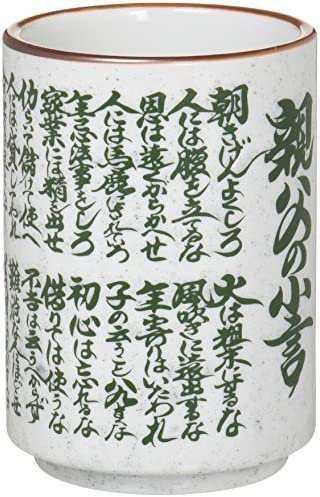 親父の小言
朝きげんよくしろ
人には腹を立てるな
恩は遠くからかへせ
人には馬鹿にされていろ
年忌法事をしろ
家業には精を出せ
働いて儲けて使へ
火は粗末にするな
風吹きに遠出するな
年寄りはいたわれ
子の云うこと八九きくな
初心は忘れるな
借りては使うな
不吉は云うべからず
難渋な人にほどこせ